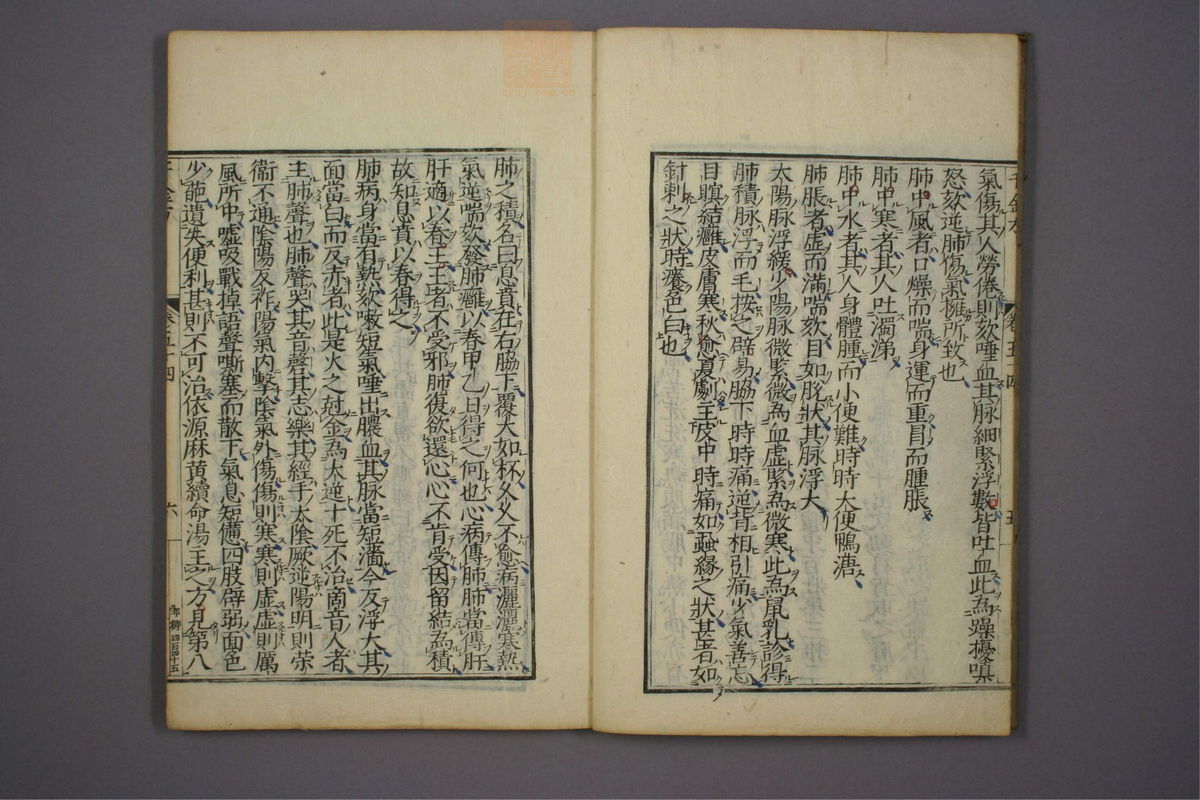 氣傷其人勞倦則欬唾血其脉細緊浮數皆吐血此為躁擾嗔
怒欬逆肺傷氣擁所致也
肺中風者口燥而喘身運而重冒而腫脹
肺中寒者其人吐濁涕
肺中水者其人身體腫而小便難時時大便鴨溏
肺脹者虚而滿喘欬目如脫狀其脉浮大
太陽脉浮緩少陽脉微緊微為血虛緊為微寒此為鼠乳診得
肺積脉浮而毛按之辟易脇下時時痛逆背相引痛少氣善忘
目瞑結癰皮膚寒秋愈夏劇主皮中時痛如蝨緣之狀甚者如
針刺之狀時癢色白也
卷五十四
五
肺之積名曰息賁在右脇下覆大如杯久久不愈病灑灑寒熱
氣逆喘欬發肺癰以春甲乙日得之何也心病傳肺肺當傳肝
肝適以春王王者不受邪肺復欲還心心不肯受因留結為積
故知息賁以春得之
肺病身當有熱欬嗽短氣唾出膿血其脉當短濇今反浮大其
面當白而反赤者此是火之尅金為大逆十死不治啇音人者
主肺聲也肺聲哭其音磬其志樂其經手太陰厥逆陽明則荣
衞不通陰陽反祚陽氣内擊陰氣外傷傷則寒寒則虛虛則厲
風所中噓吸戰掉語聲嘶塞而散下氣息短憊四肢痹弱面色
少葩遺失便利甚則不可治依源麻黄續命湯主之方見第八
卷五十四
六
四百四十五